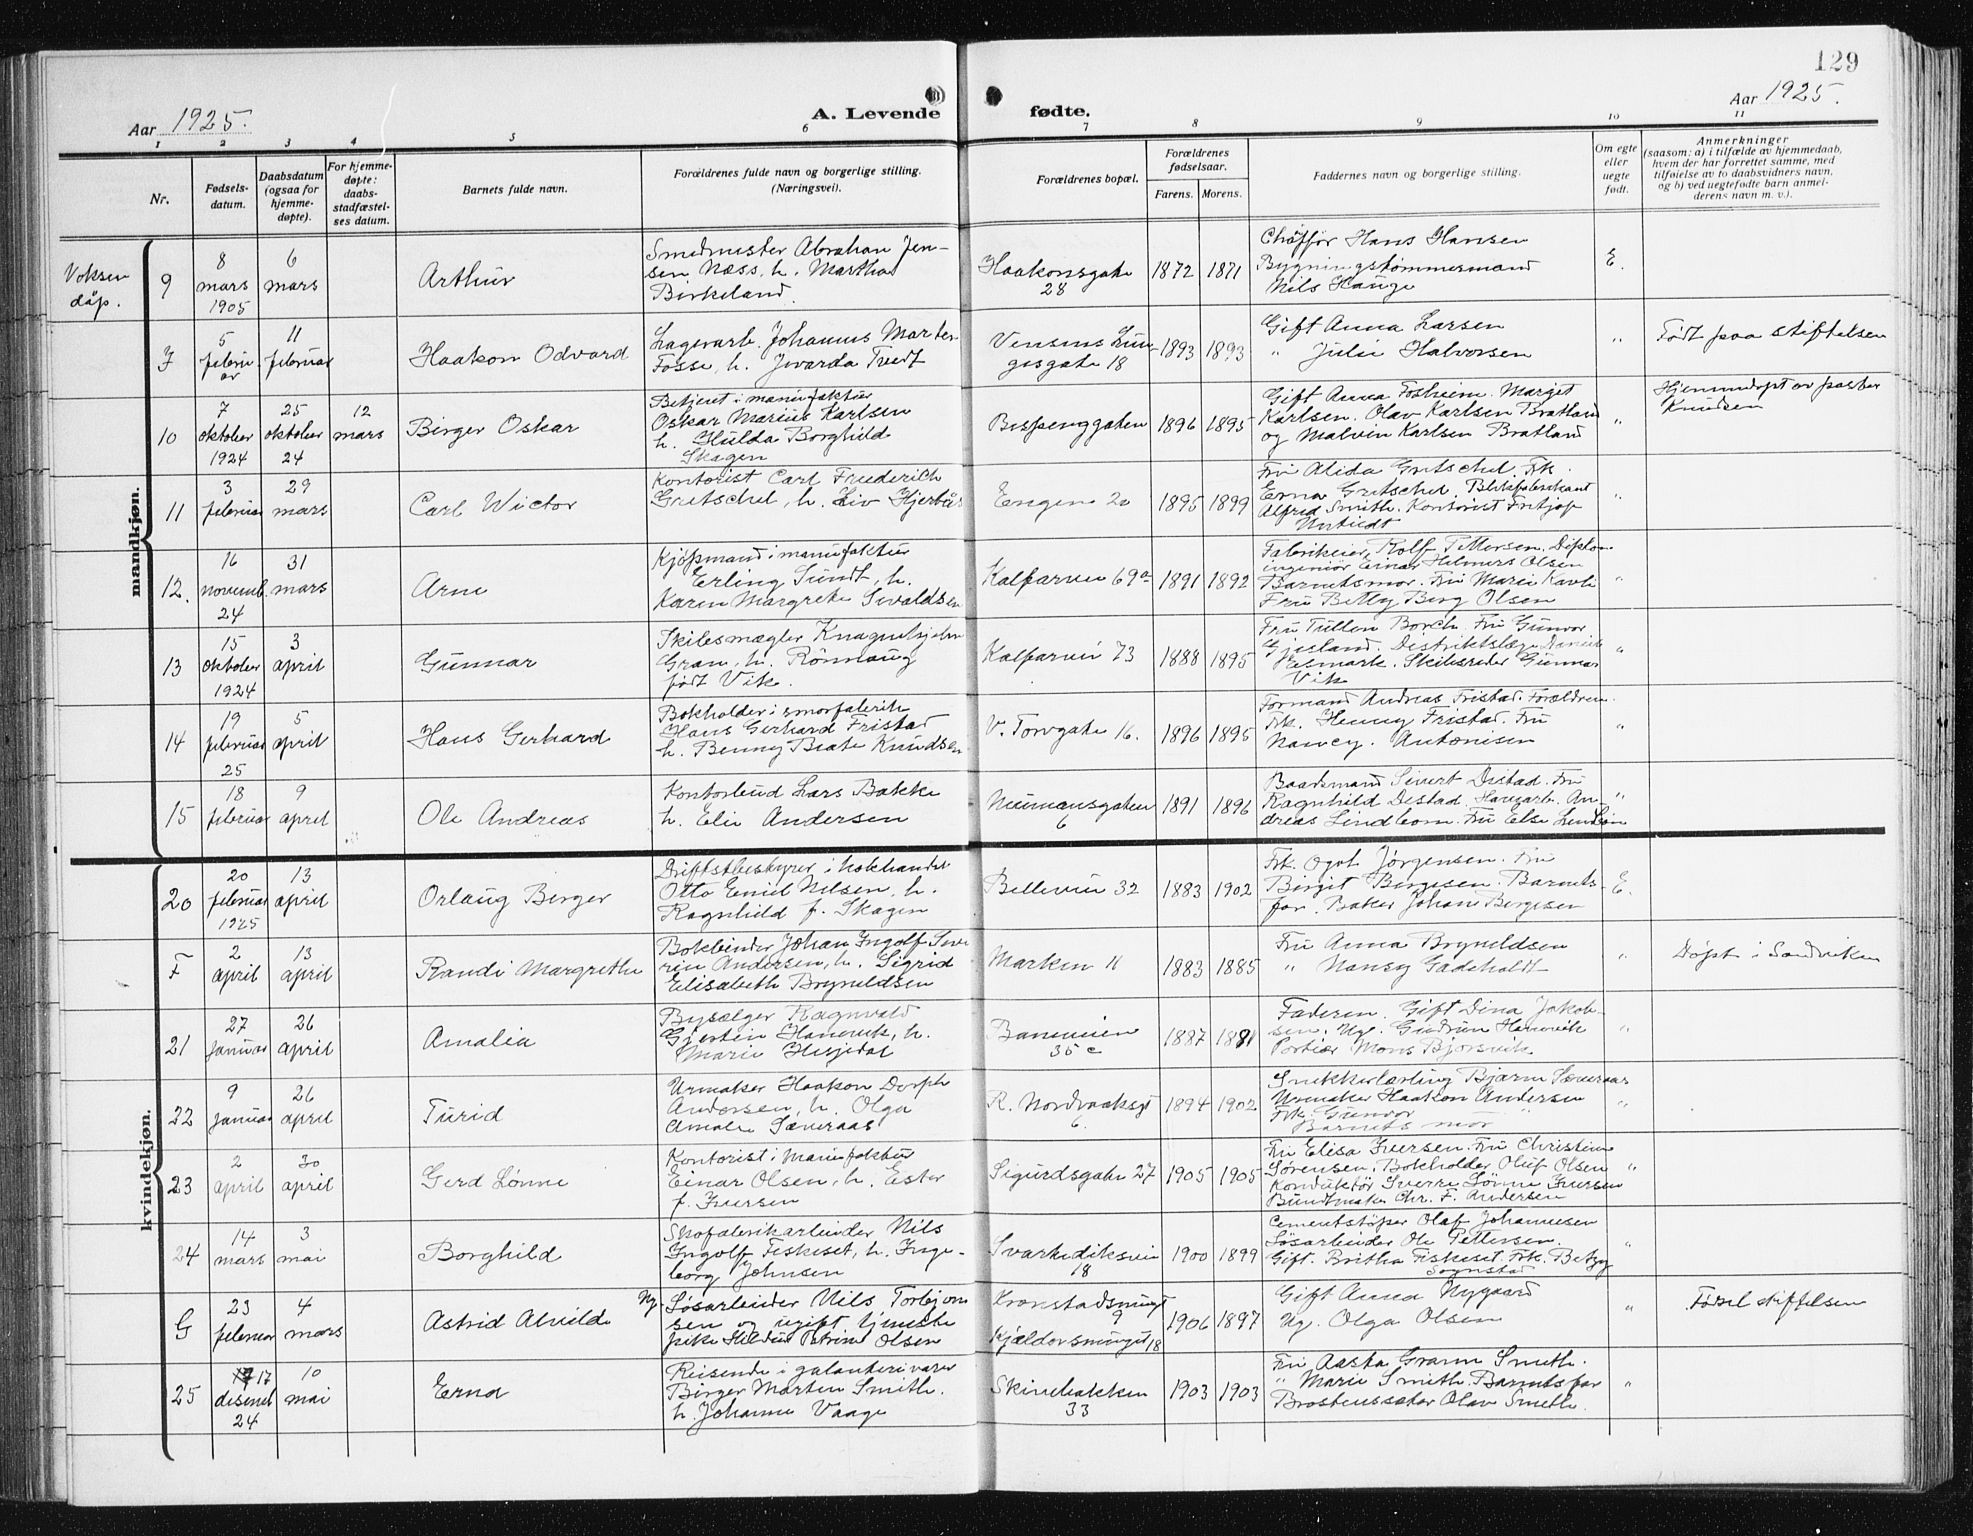 129
Aar 1925.
A. Levende
fødte.
Aar 1925.
1 2 3 4 5 6 7 8 9 10 11
Nr.
Fødsels-
datum.
Daabsdatum
(ogsaa for
hjemme-
døpte).
For hjemme-
døpte:
daabs-
stadfæstel-
ses datum.
Barnets fulde navn.
Forældrenes fulde navn og borgerlige stilling.
(Næringsvei).
Forældrenes bopæl.
Forældrenes
fødselsaar.
Farens. Morens.
Faddernes navn og borgerlige stilling.
Om egte
eller
uegte
født.
Anmerkninger
(saasom: a) i tilfælde av hjemmedaab,
hvem der har forrettet samme, med
tilføielse av to daabsvidners navn,
og b) ved uegtefødte barn anmel-
derens navn m. v.).
mandkjøn.
Voksen
dåp.
9
8
mars
1905
6
mars
Arthur
Smedmester Abraham Jen-
sen Næss, h. Martha
Birkeland.
Haakonsgate
28
1872 1871
Chåffør Hans Hansen
Bygningstømmermand
Nils Hauge
E.
F
5
februar
11
februar
Haakon Odvard
Lagerarb. Johannes Marten
Fosse, h. Ivarda Tvedt
gate 18
1893 1893
Gift Anna Larsen
" Julie Halvorsen
"
Født paa stiftelsen
10
7
oktober
1924
25
oktober
24
12
mars
Birger Oskar
Betjent i manufaktur
Oskar Marius Karlsen
h. Hulda Borghild
Skagen
Bispenggaten
1896 1895
Gift Anna Fosheim. Margit
Karlsen. Olav Karlsen Bratland
og Malvin Karlsen Bratland
"
Hjemmedøpt av pastor
Knudsen
11
3
februar
29
mars
Carl Wictor
Kontorist Carl Frederich
Gretschel, h. Liv Hjertås
Engen 20
1895 1899
Fru Alida Gretschel. Frk.
Erna Gretschel. Blikfabrikant
Alfred Smith. Kontorist Fritjof
"
12.
16
novemb.
24
31
mars
Arne
Kjøpmand i manufaktur
Erling Sundt, h.
Karen Margrete Sivaldsen
Kalfarvei 69a
1891 1892
Fabrikeier Rolf Pettersen. Diplom
ingeniør Einar Helmers Olsen
Barnets mor. Fru Marie Kavli
Fru Betty Berg Olsen
"
13
15
oktober
1924
3
april
Gunnar
Skibsmægler
Gran, h. Rönnaug
født Vik.
Kalfarvei 73
1888 1895
Fru Tullen Borch. Fru Gunvor
Gjesland. Distriktslæge
Esmark. Skibsreder Gunnar
Vik
"
14
19
februar
25
5
april
Hans Gerhard
Bokholder i smørfabrik
Hans Gerhard Fristad
h. Benny Beate Knudsen
V. Torvgate 16.
1896 1895
Formand Andreas Fristad. Forældrene.
Frk. Henny Fristad. Fru
Nancy. Antonisen
"
15
18
februar
9
april
Ole Andreas
Kontorbud Lars Bakke
h. Elie Andersen
Neumansgaten
6
1891 1896
Baadsmand Sivert Distad. Fru
Ragnhild Distad. Havnarb. An-
dreas Lindbom. Fru Else Lindbom
"
kvindekjøn.
20
20
februar
1925
13
april
Orlaug Berger
Driftsbestyrer i kokhandel
Otto Emil Nilsen, h.
Ragnhild f. Skagen
Bellevue 32
1883 1902
Frk. Ogot Jørgensen. Fru
Birgit Bergesen. Barnets
far. Baker Johan Bergesen
E.
F
2
april
13
april
Randi Margrethe
Bokbinder Johan Ingolf Seve
rin Andersen, h. Sigrid
Elisabeth Bryneldsen
Marken 11
1883 1885
Fru Anna Bryneldsen
" Nansy Gadeholdt
"
Døpt i Sandviken
21
27
januar
26
april
Amalia
Bysælger Ragnvald
Gjertin Hannevik, h.
Marie Husjedal
Baneveien
35 c
1887 1881
Faderen. Gift Dina Jakob-
sen. Ug. Gudrun Hannevik
Portier Mons Bjørsvik
"
22
9
januar
26
april
Turid
Urmaker Haakon Dorph
Andersen, h. Olga
Amalie Sæveraas
R. Nordraaksgt
6.
1894 1902
Snekkerlærling Bjarne Sæveraas
Urmaker Haakon Andersen
Frk. Gunvor "
Barnets mor
"
23
2
april
30
april
Gerd Lønne
Kontorist i manufaktur
Einar Olsen, h. Ester
f. Iversen
Sigurdsgate 27
1905 1905
Fru Elisa Iversen. Fru Christine
Sørensen. Bokholder Oluf Olsen
Konduktør Sverre Lønne Iversen
Buntmaker Chr. F. Andersen
"
24
14
mars
3
mai
Borghild
Skofabrikarbeider Nils
Ingolf Fiskeset, h. Inge-
borg Johnsen
Svartediksvei
18
1900 1899
Cementstøper Olaf Johannesen
Løsarbeider Ole Pettersen.
Gift. Britha Fiskeset. Frk. Betzy
Sognstad
"
G
23
februar
4
mars
Astrid Alvilde
Ug. Løsarbeider Nils Torbjørn
sen og ugift tjeneste
pike Hildur Petrine Olsen
Kronstadsmugt
9
Kjældersmuget 18
1906 1897
Gift Anna Nygaard
Ug. Olga Olsen
"
Fødsel stiftelsen
25
17
desemb
24
10
mai
Erna
Reisende i galanterivarer
Birger Marten Smith.
h. Johanne Vaage
Skivebakken
33
1903 1903
Fru Aasta Gramn Smith.
" Marie Smith. Barnets far
Brostenssætter Olav Smith.
"